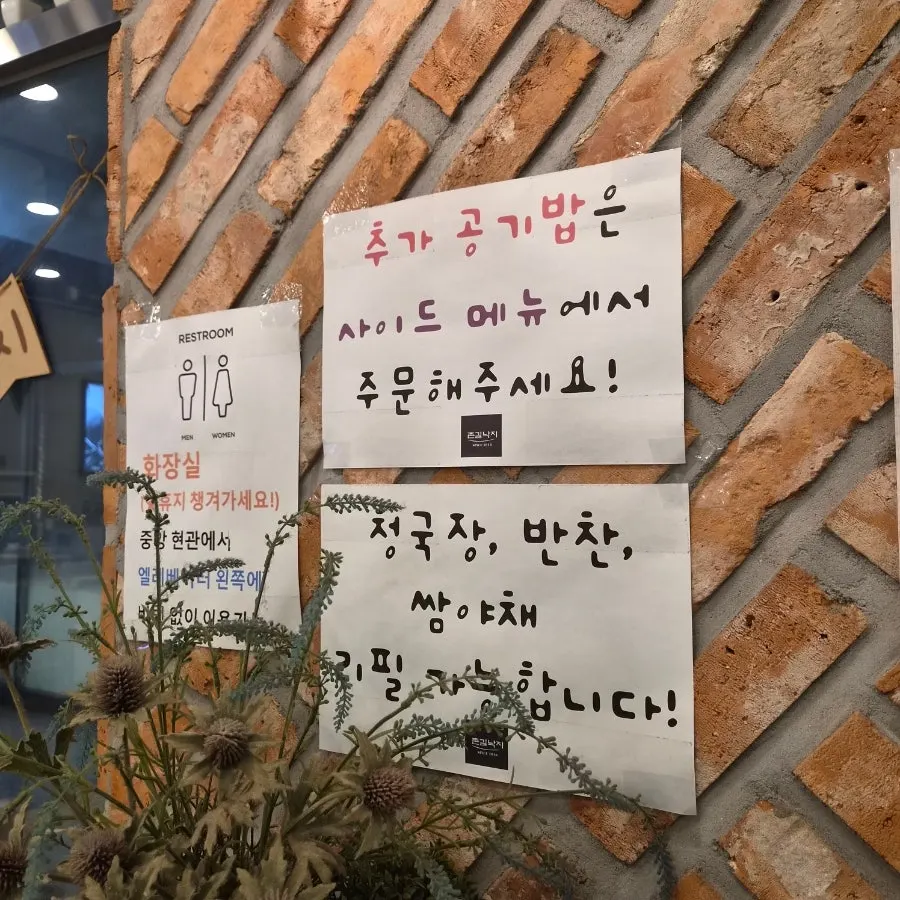 RESTROOM
MEN WOMEN
화장실
휴지 챙겨가세요!)
중앙 현관에서
왼쪽에
없이
추가 공기밥은
사이드 메뉴에서
주문해주세요!
존길낙지
정국장, 반찬,
쌈야채
리필 가능합니다!
존길낙지